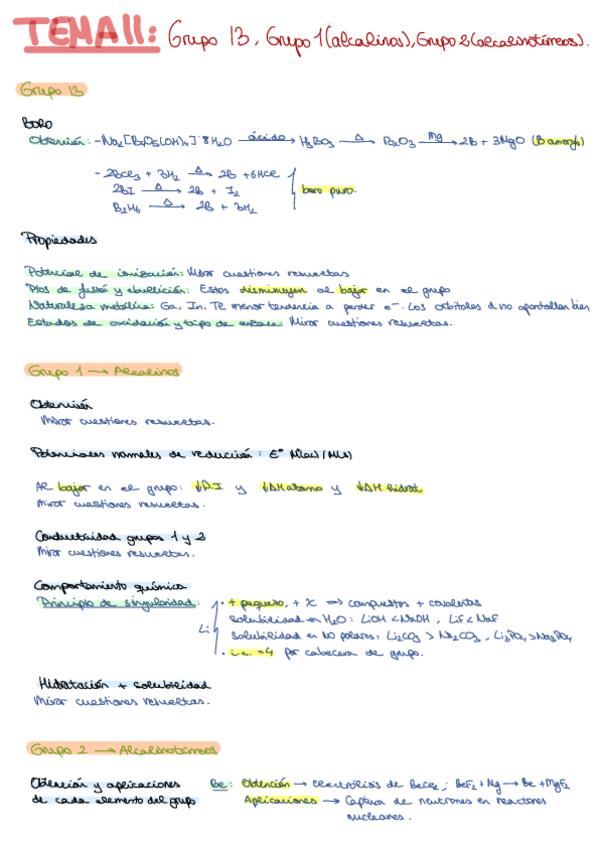 TEMA 11: Grupo 13, Grupo 1 (alcalinos), Grupo 2 (alcalinotérreos).
Grupo 13
BORO
Obtención: - Na₂[B₄O₅(OH)₄]·8H₂O —ácido→ H₃BO₃ —Δ→ B₂O₃ —Mg→ 2B + 3MgO (B amorfo)
- 2BCl₃ + 3H₂ —Δ→ 2B + 6HCl
2BI —Δ→ 2B + I₂
boro puro.
B₂H₆ —Δ→ 2B + 3H₂
Propiedades
Potencial de ionización: Mirar cuestiones resueltas
Ptos de fusión y ebullición: Estos disminuyen al bajar en el grupo
Naturaleza metálica: Ga, In, Tl menor tendencia a perder e⁻. Los orbitales d no apantallan bien
Estados de oxidación y tipo de enlace: Mirar cuestiones resueltas.
Grupo 1 → Alcalinos
Obtención
Mirar cuestiones resueltas.
Potenciales normales de reducción: E° M⁺(ac)/M(s)
Al bajar en el grupo: ↓P.I y ↓ΔH atomo y ↓ΔH hidrat
Mirar cuestiones resueltas.
Conductividad grupos 1 y 2
Mirar cuestiones resueltas.
Comportamiento químico
Principio de singularidad:
Li
· + pequeño, + χ ⇒ compuestos + covalentes
Solubilidad en H₂O: LiOH < NaOH, LiF < NaF
Solubilidad en NO polares: Li₂CO₃ > Na₂CO₃, Li₃PO₄ > Na₃PO₄
· i.c. = 4 por cabecera de grupo.
Hidratación + solubilidad
Mirar cuestiones resueltas.
Grupo 2 → Alcalinotérreos
Obtención y aplicaciones de cada elemento del grupo
Be: Obtención → electrólisis de BeCl₂; BeF₂ + Mg → Be + MgF₂
Aplicaciones → Captura de neutrones en reactores
nucleares.